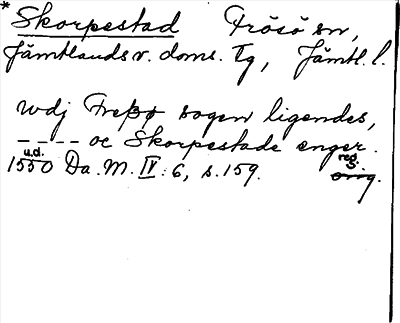 * Skorpestad Frösö sn,
Jämtlands v. doms. Tg, Jämtl. l.
wdj Frebø sogen ligendes,
---- oc Skorpestade enger.
u.d. reg.
1550 Da. M. IV: 6, s. 159. orig.